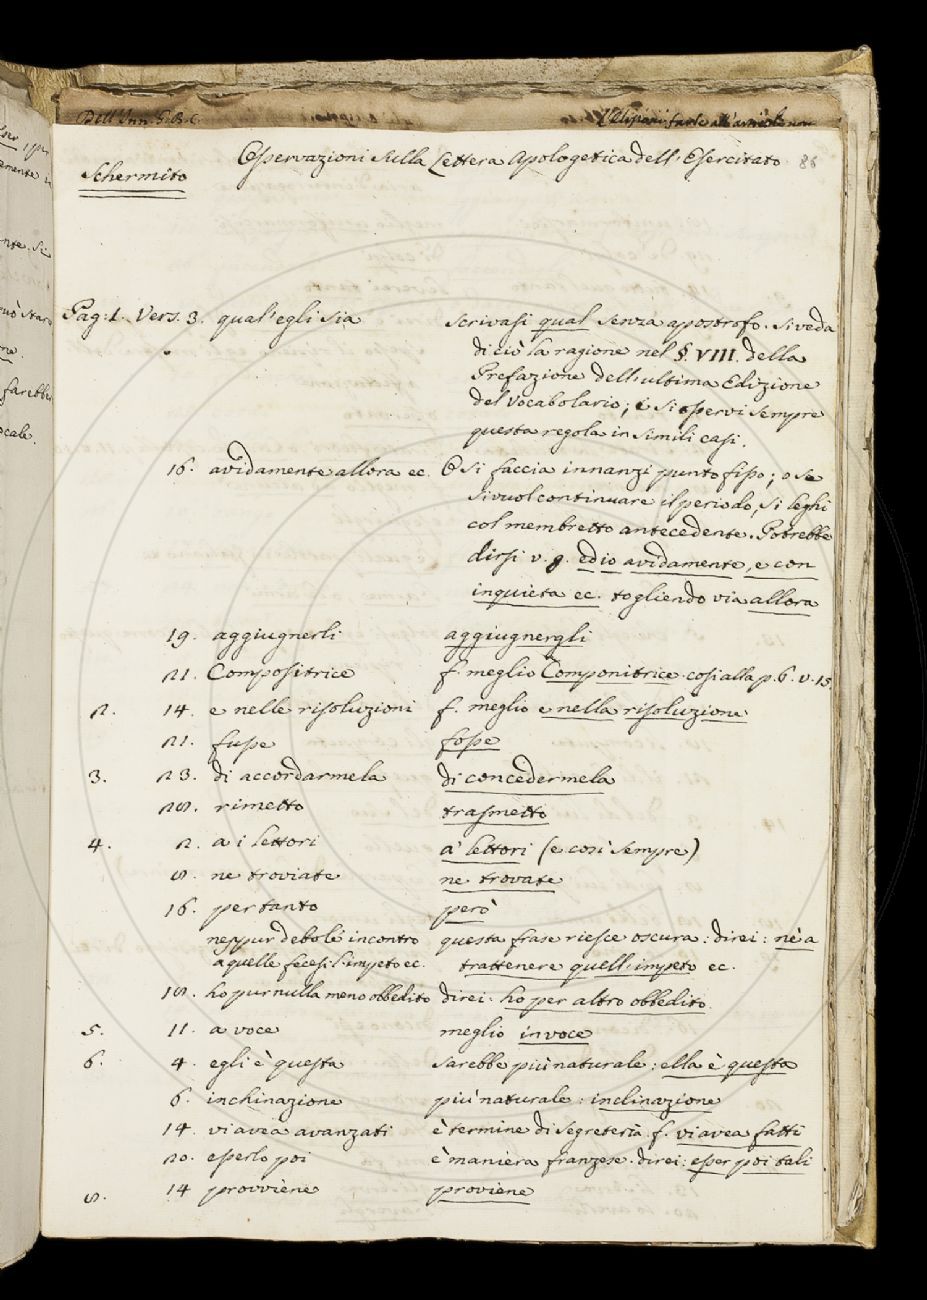 Dell'Inn. G. B. C.
Osservazioni sulla Lettera Apologetica dell'Esercitato 86
Schermito
Pag: 1. Vers. 3. qual'egli sia scrivasi qual senza apostrofo. Si veda
di ciò la ragione nel §. VIII. della
Prefazione dell'ultima Edizione
del Vocabolario; e si osservi sempre
questa regola in simili casi.
16. avidamente allora ec. O si faccia innanzi punto fisso; o se
si vuol continuare il periodo, si leghi
col membretto antecedente. Potrebbe
dirsi v. g. ed io avidamente, e con
inquieta ec. togliendo via allora
19. aggiugnerli aggiugnergli
21. Compositrice f. meglio Componitrice. così alla p. 6. v. 15.
2. 14. e nelle risoluzioni f. meglio e nella risoluzione
21. fusse fosse
3. 23. di accordarmela di concedermela
28. rimetto trasmetto
4. 2. a i lettori a' lettori (e così sempre)
8. ne troviate ne trovate
16. per tanto però
neppur debolé incontro questa frase riesce oscura: direi: nè a
a quelle fecesi l'impeto ec. trattenere quell'impeto ec.
18. ho pur nulla meno obbedito direi: ho per altro obbedito.
5. 11. a voce meglio in voce
6. 4. egli è questa sarebbe più naturale: ella è questa
6. inchinazione più naturale: inclinazione
14. vi avea avanzati è termine di Segreteria. f. vi avea fatti
20. esserlo poi è maniera franzese. direi: esser poi tali
8. 14 provviene proviene